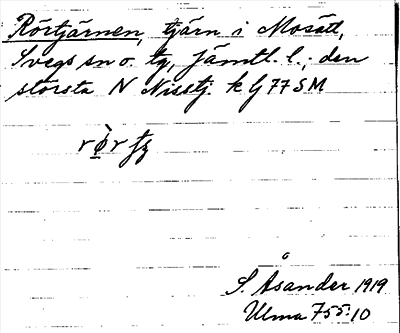 Rörtjärnen, tjärn i Mosätt,
Svegs sn o. tg, Jämtl. l.; den
största N Nisstj. k G 77 SM
S. Åsander 1919
Ulma 755:10